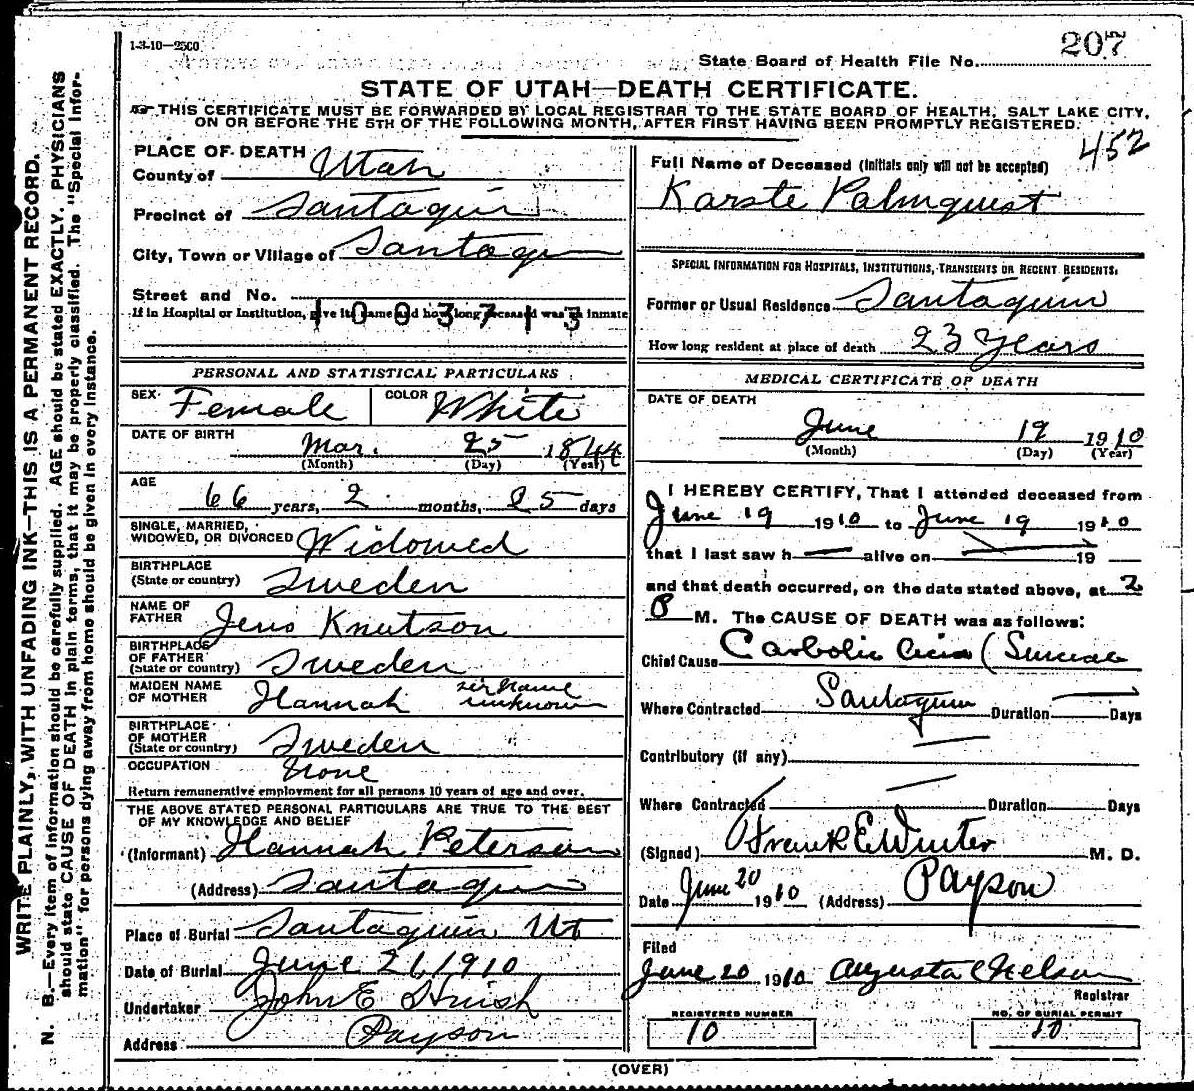 1-3-10—2500
207
State Board of Health File No.
STATE OF UTAH—DEATH CERTIFICATE.
THIS CERTIFICATE MUST BE FORWARDED BY LOCAL REGISTRAR TO THE STATE BOARD OF HEALTH, SALT LAKE CITY,
ON OR BEFORE THE 5TH OF THE FOLLOWING MONTH, AFTER FIRST HAVING BEEN PROMPTLY REGISTERED.
452
WRITE PLAINLY, WITH UNFADING INK—THIS IS A PERMANENT RECORD.
N. B.—Every item of information should be carefully supplied. AGE should be stated EXACTLY. PHYSICIANS
should state CAUSE OF DEATH in plain terms, that it may be properly classified. The "Special Infor-
mation" for persons dying away from home should be given in every instance.
PLACE OF DEATH
County of Utah
Precinct of Santaquin
City, Town or Village of Santaquin
Street and No.
If in Hospital or Institution, give its name and how long deceased was an inmate
1003713
PERSONAL AND STATISTICAL PARTICULARS
SEX Female COLOR White
DATE OF BIRTH
Mar. 25 1844
(Month) (Day) (Year)
AGE
66 years, 2 months, 25 days
SINGLE, MARRIED,
WIDOWED, OR DIVORCED Widowed
BIRTHPLACE
(State or country) Sweden
NAME OF
FATHER Jens Knutson
BIRTHPLACE
OF FATHER
(State or country) Sweden
MAIDEN NAME
OF MOTHER Hannah sir name unknown
BIRTHPLACE
OF MOTHER
(State or country) Sweden
OCCUPATION None
Return remunerative employment for all persons 10 years of age and over.
THE ABOVE STATED PERSONAL PARTICULARS ARE TRUE TO THE BEST
OF MY KNOWLEDGE AND BELIEF
(Informant) Hannah Peterson
(Address) Santaquin
Place of Burial Santaquin Ut
Date of Burial June 21 1910
Undertaker John E Huish
Address Payson
Full Name of Deceased (Initials only will not be accepted)
Karste Palmquist
SPECIAL INFORMATION FOR HOSPITALS, INSTITUTIONS, TRANSIENTS OR RECENT RESIDENTS.
Former or Usual Residence Santaquin
How long resident at place of death 23 years
MEDICAL CERTIFICATE OF DEATH
DATE OF DEATH
June 19 1910
(Month) (Day) (Year)
I HEREBY CERTIFY, That I attended deceased from
June 19 1910 to June 19 1910
that I last saw h alive on 19
and that death occurred, on the date stated above, at 2
P M. The CAUSE OF DEATH was as follows:
Chief Cause Carbolic Acid (Suicide
Where Contracted Santaquin Duration Days
Contributory (if any)
Where Contracted Duration Days
(Signed) Frank E Winter M. D.
Date June 20 1910 (Address) Payson
Filed
June 20 1910 Augusta C Nelson
Registrar
REGISTERED NUMBER
10
NO. OF BURIAL PERMIT
10
(OVER)